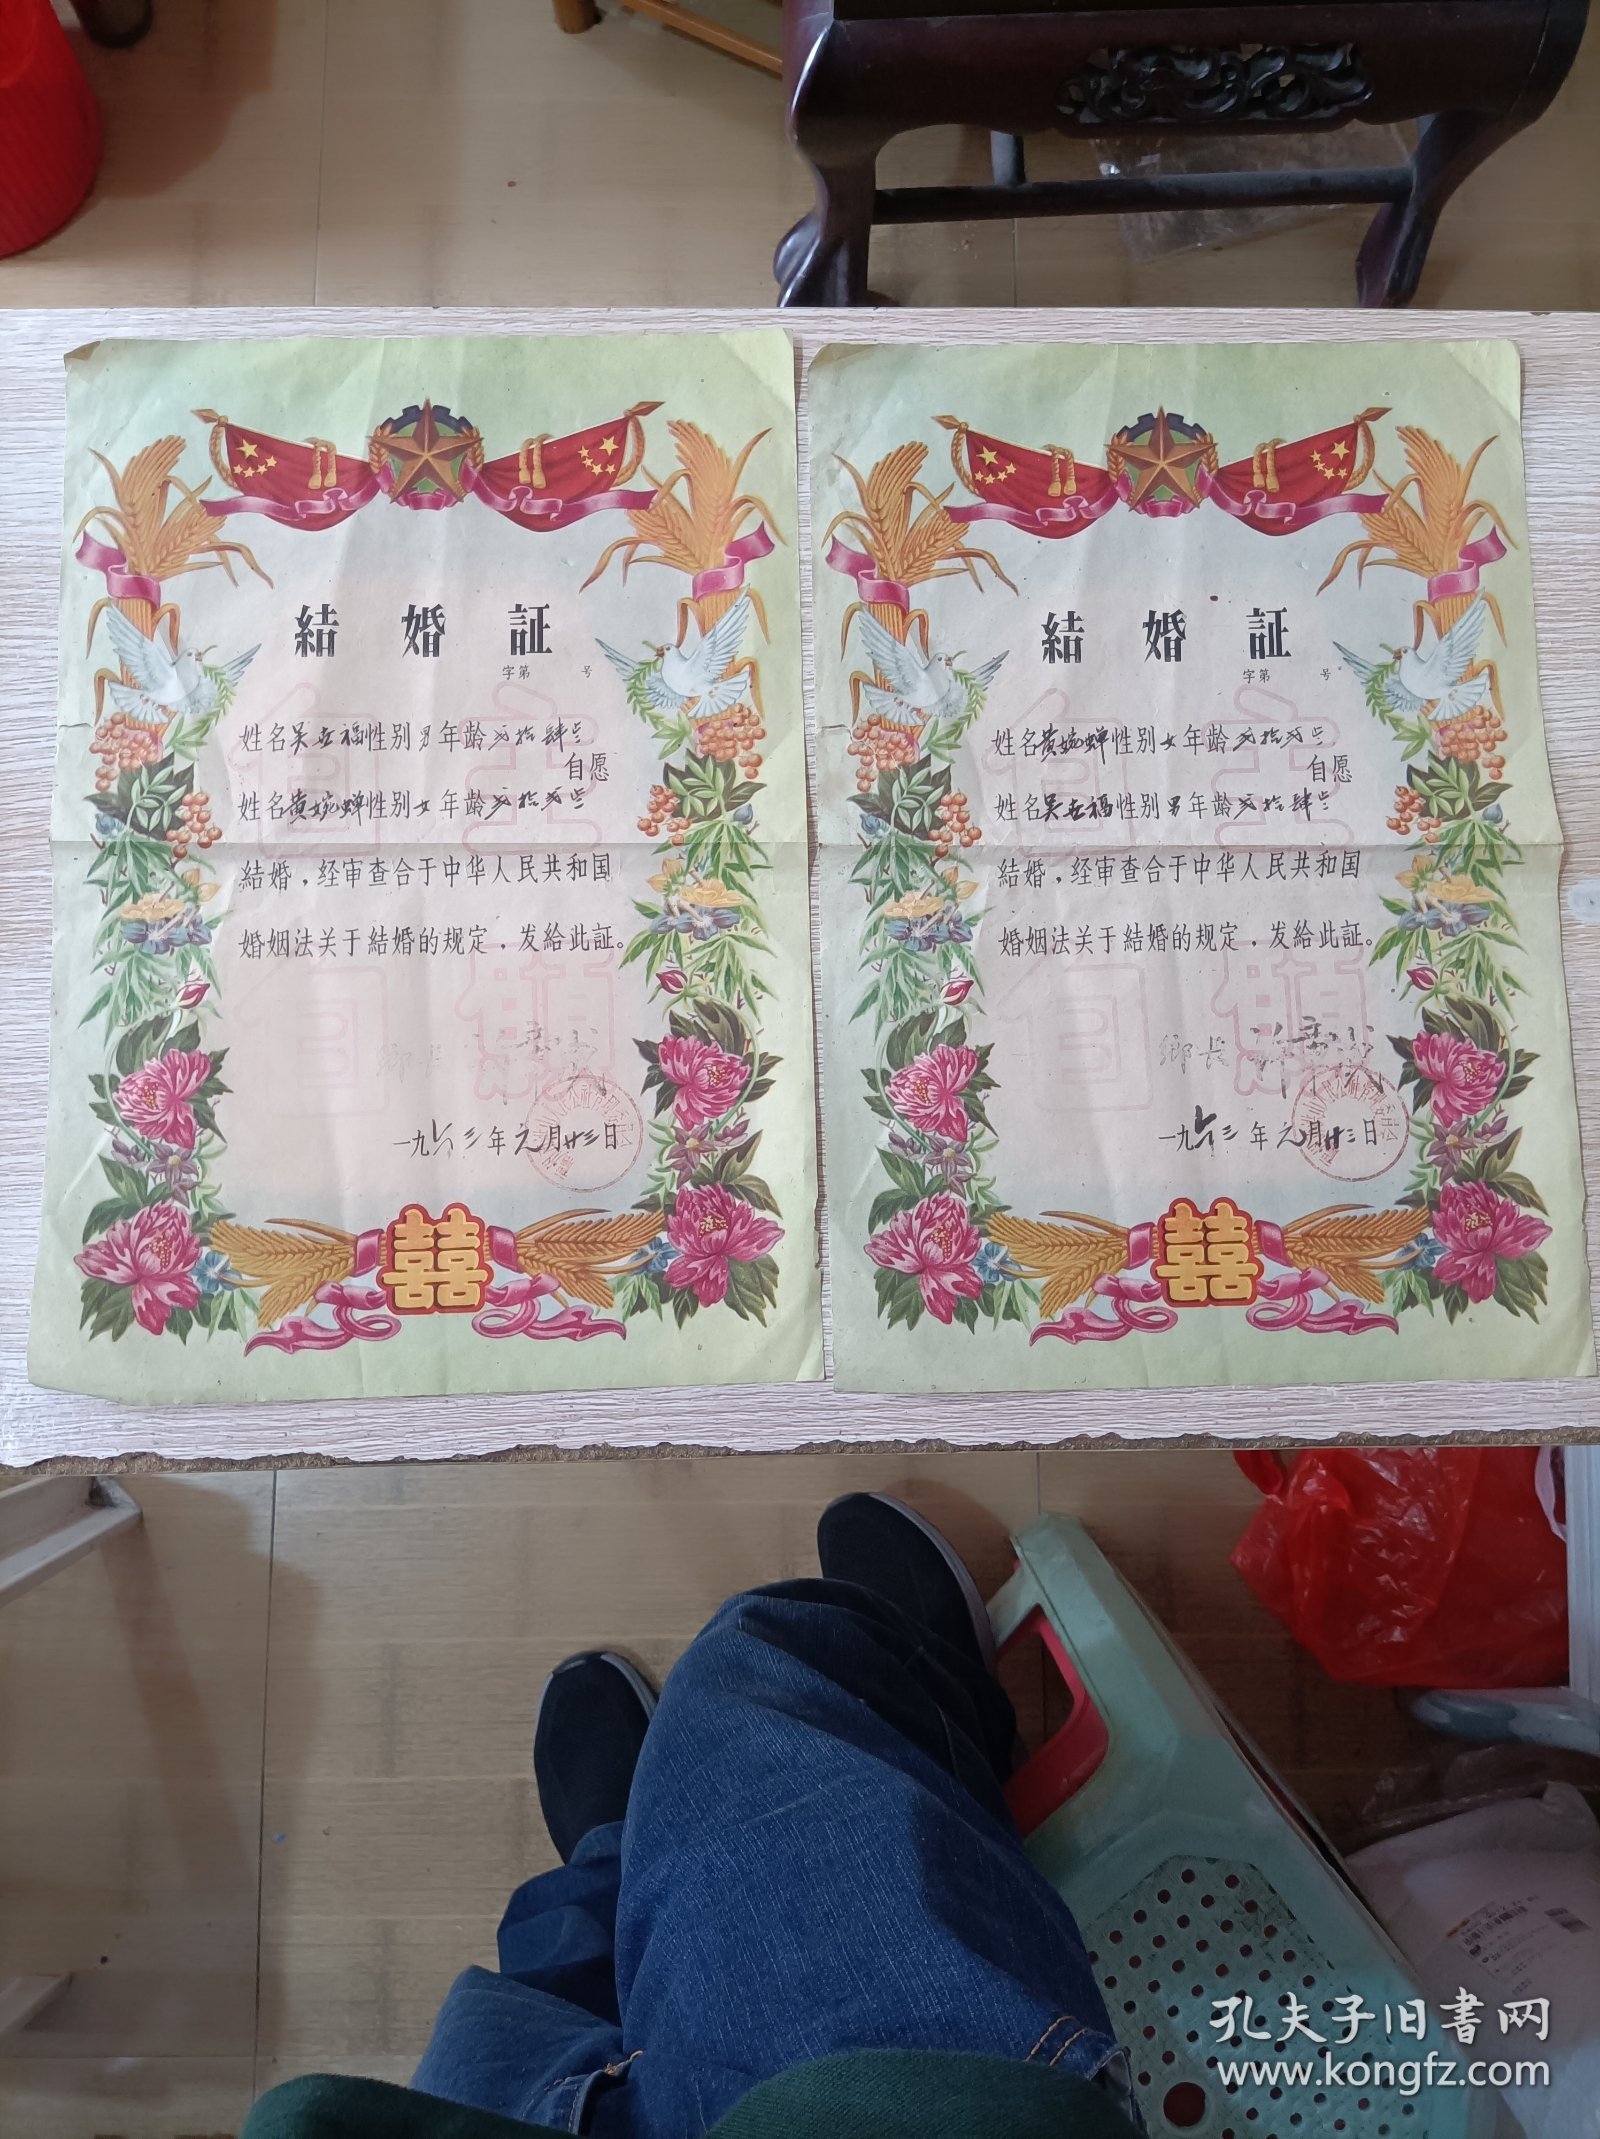 結婚証
字第 号
姓名吴世福性别男年龄贰拾肆岁
自愿
姓名黄婉蝉性别女年龄贰拾贰岁
結婚，经审查合于中华人民共和国
婚姻法关于結婚的规定，发給此証。
自主
自願
鄉長
一九六三年元月廿三日
囍
結婚証
字第 号
姓名黄婉蝉性别女年龄贰拾贰岁
自愿
姓名吴世福性别男年龄贰拾肆岁
結婚，经审查合于中华人民共和国
婚姻法关于結婚的规定，发給此証。
自主
自願
鄉長許
一九六三年元月廿三日
囍
孔夫子旧书网
www.kongfz.com